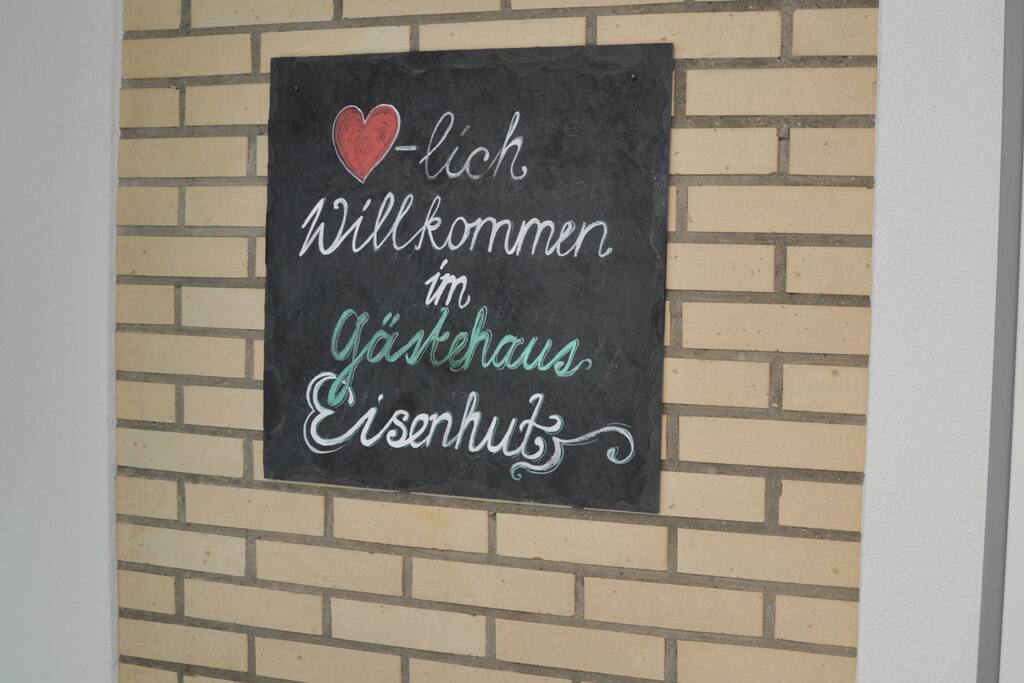 ❤-lich
Willkommen
im
Gästehaus
Eisenhut